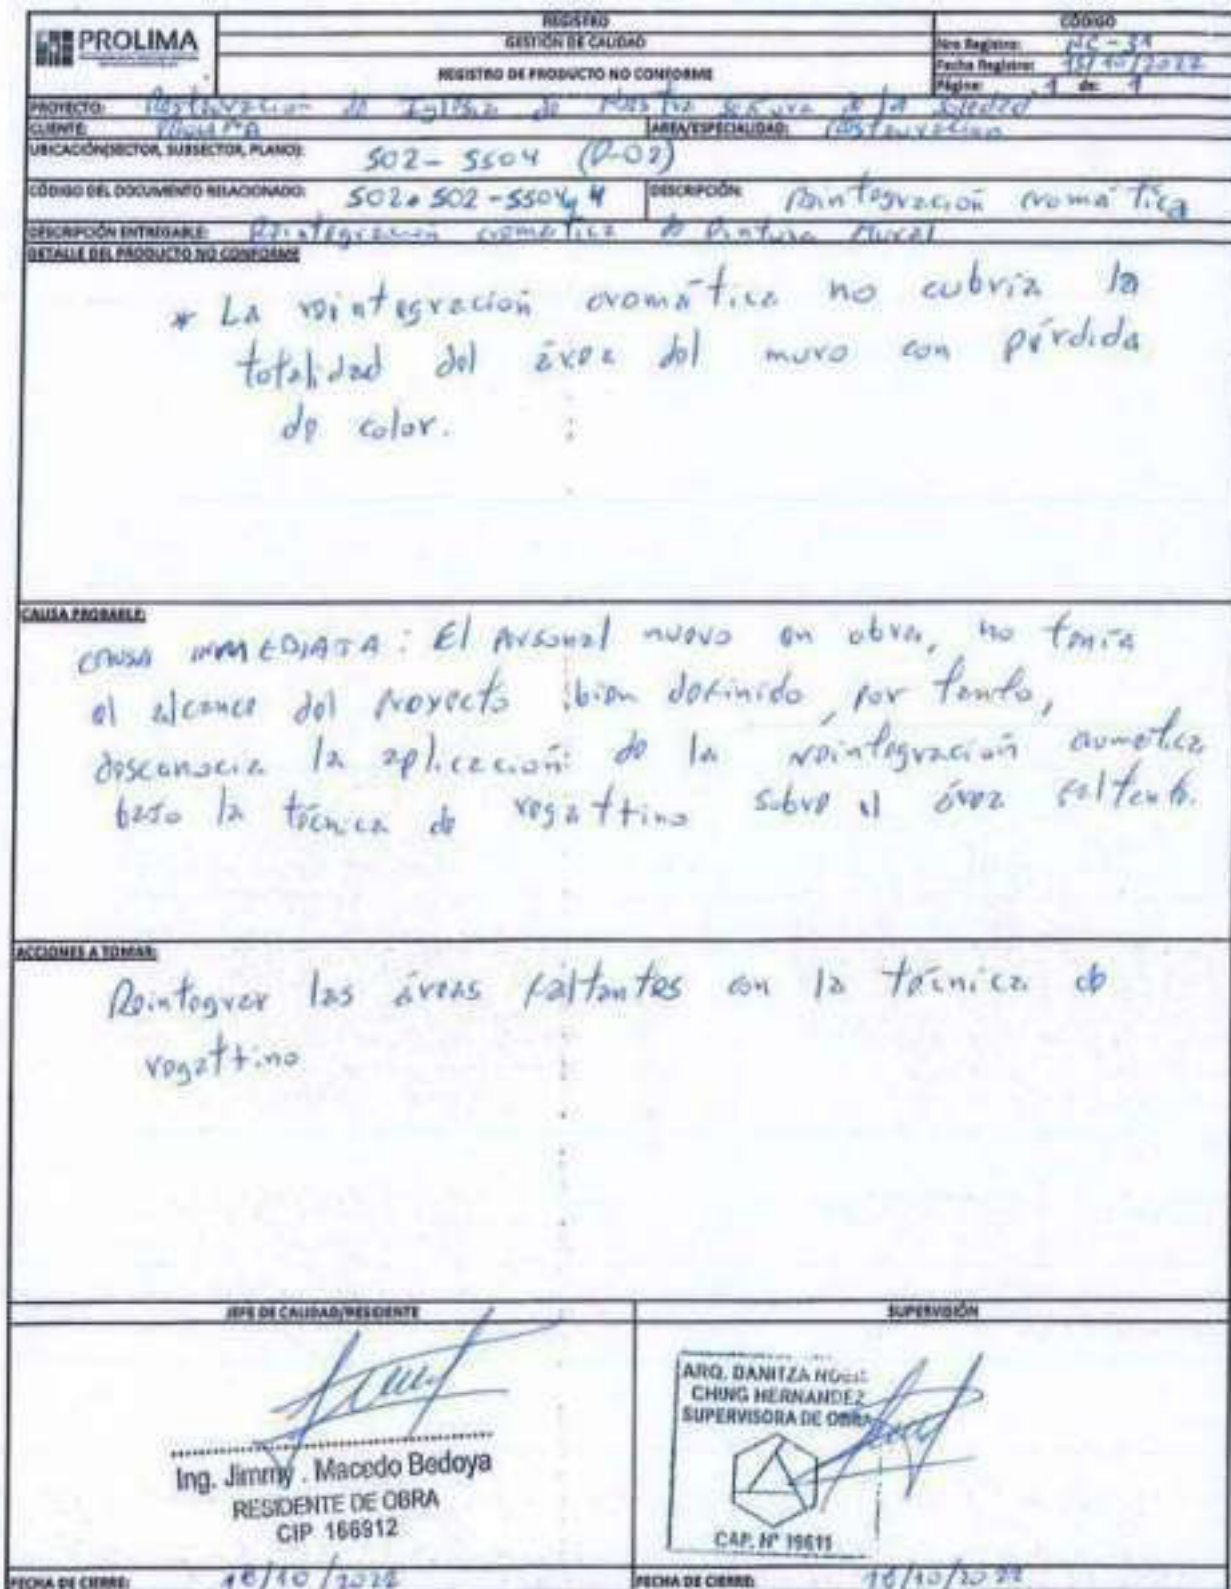 PROLIMA
REGISTRO
GESTIÓN DE CALIDAD
REGISTRO DE PRODUCTO NO CONFORME
CÓDIGO
Nro Registro: NC-31
Fecha Registro: 15/10/2022
Página: 1 de: 1
PROYECTO: Restauración de Iglesia de Nuestra Señora de la Soledad
CLIENTE: PROLIMA AREA/ESPECIALIDAD: Restauración
UBICACIÓN(SECTOR, SUBSECTOR, PLANO): S02-SS04 (P-02)
CÓDIGO DEL DOCUMENTO RELACIONADO: DESCRIPCIÓN: Reintegración cromática
DESCRIPCIÓN ENTREGABLE: Reintegración cromática de Pintura Mural
DETALLE DEL PRODUCTO NO CONFORME
* La reintegración cromática no cubría la
totalidad del área del muro con pérdida
de color.
CAUSA PROBABLE:
CAUSA INMEDIATA: El personal nuevo en obra, no tenía
el alcance del proyecto bien definido, por tanto,
desconocia la aplicación de la reintegración cromática
bajo la técnica de regattino sobre el área faltante.
ACCIONES A TOMAR:
Reintegrar las áreas faltantes con la técnica de
regattino
JEFE DE CALIDAD/RESIDENTE
SUPERVISIÓN
Ing. Jimmy . Macedo Bedoya
RESIDENTE DE OBRA
CIP 166912
ARQ. DANITZA
CHING HERNANDEZ
SUPERVISORA DE OBRA
CAP. Nº 19611
FECHA DE CIERRE: 16/10/2022
FECHA DE CIERRE: 16/10/2022